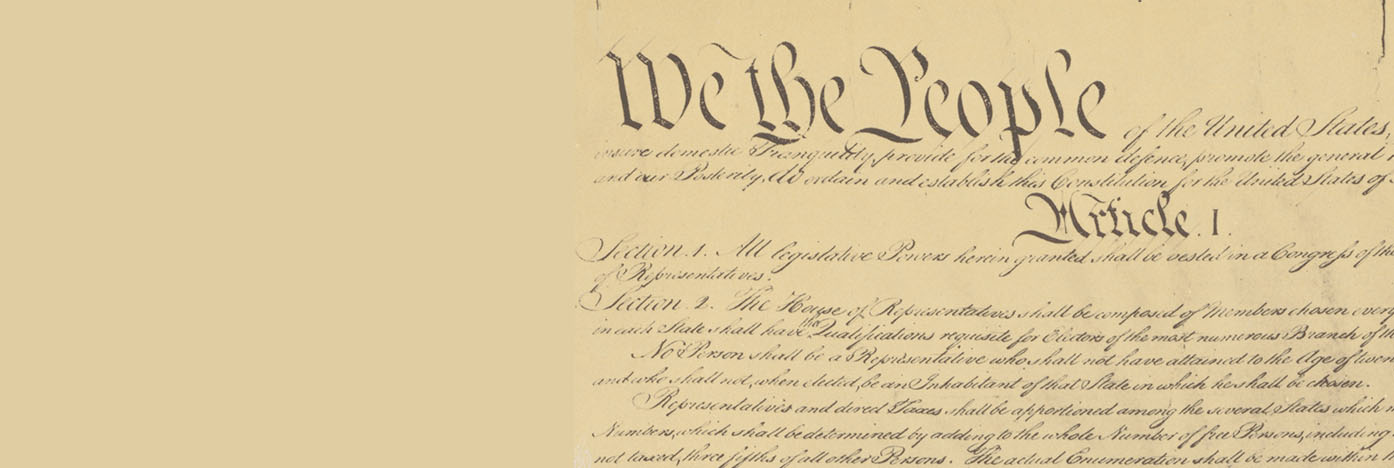 We the People of the United States,
insure domestic Tranquility, provide for the common defence, promote the general
and our Posterity, do ordain and establish this Constitution for the United States of
Article. I.
Section. 1. All legislative Powers herein granted shall be vested in a Congress of the
of Representatives.
Section. 2. The House of Representatives shall be composed of Members chosen every
in each State shall have the Qualifications requisite for Electors of the most numerous Branch of the
No Person shall be a Representative who shall not have attained to the Age of twen
and who shall not, when elected, be an Inhabitant of that State in which he shall be chosen.
Representatives and direct Taxes shall be apportioned among the several States which
Numbers, which shall be determined by adding to the whole Number of free Persons, including
not taxed, three fifths of all other Persons. The actual Enumeration shall be made within